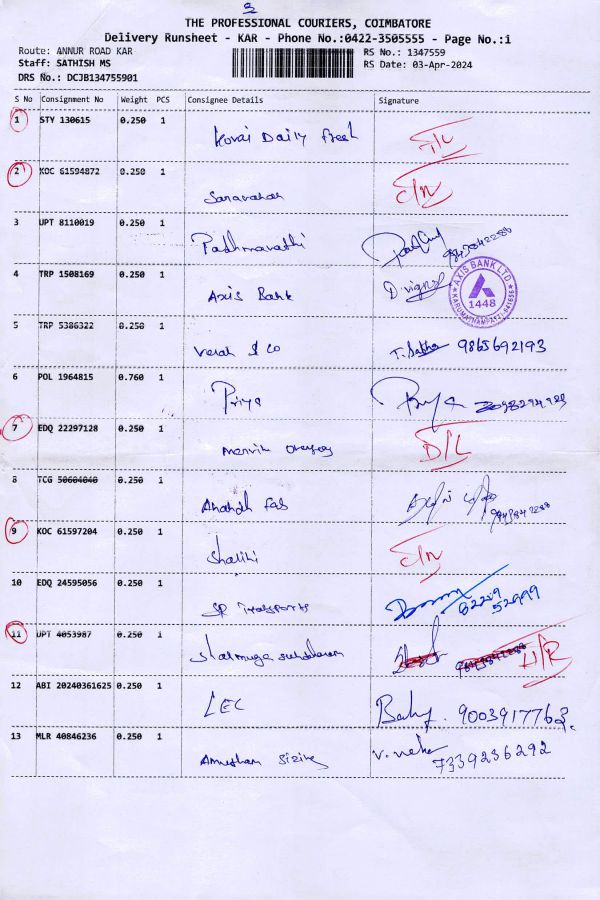 2
THE PROFESSIONAL COURIERS, COIMBATORE
Delivery Runsheet - KAR - Phone No.:0422-3505555 - Page No.:1
Route: ANNUR ROAD KAR
RS No.: 1347559
Staff: SATHISH MS
RS Date: 03-Apr-2024
DRS No.: DCJB134755901
S No Consignment No Weight PCS Consignee Details Signature
1 STY 130615 0.250 1 Kovai Daily Fresh
2 KOC 61594872 0.250 1 Saravanan
3 UPT 8110019 0.250 1 Padhmavathi
4 TRP 1508169 0.250 1 Axis Bank D vignesh
AXIS BANK LTD
1448
5 TRP 5386322 0.250 1 & co 9865692193
6 POL 1964815 0.760 1 Priya Priya
7 EDQ 22297128 0.250 1 D/L
8 TCG 50604040 0.250 1 Ananth
9 KOC 61597204 0.250 1 Shalini
10 EDQ 24595056 0.250 1 SP Transports 82209 52999
11 UPT 4053987 0.250 1
12 ABI 20240361625 0.250 1 LEC 9003917763
13 MLR 40846236 0.250 1 Sizing V. 7339236292